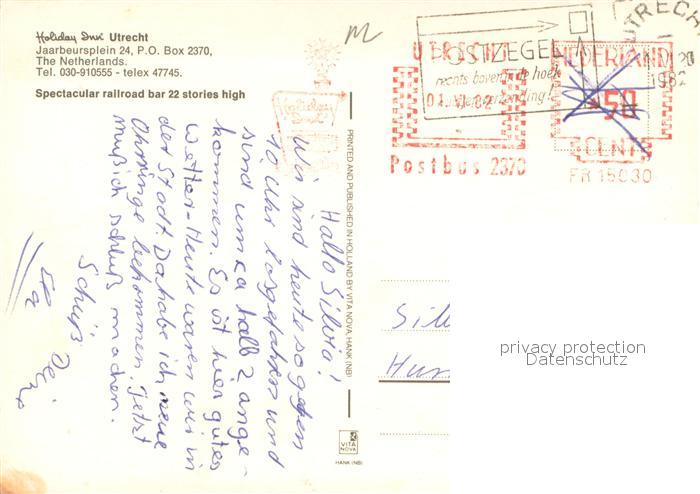 Holiday Inn Utrecht
Jaarbeursplein 24, P.O. Box 2370,
The Netherlands.
Tel. 030-910555 - telex 47745.
Spectacular railroad bar 22 stories high
Hallo Silvia!
Wir sind heute so gegen
10 Uhr losgefahren und
sind um ca halb 2 ange-
kommen. Es ist hier gutes
Wetter. Heute waren wir in
der Stadt. Da habe ich neue
Ohrringe bekommen. Jetzt
muß ich schluß machen.
PRINTED AND PUBLISHED IN HOLLAND BY VITA NOVA HANK (NB)
VITA
NOVA
HANK (NB)
UTRECHT
POSTZEGEL
rechts boven in de hoek
UTRECHT
NEDERLAND
1982
50
CENT
Postbus 2370
FR 15030
Holiday
Inn
Sil
privacy protection
Datenschutz